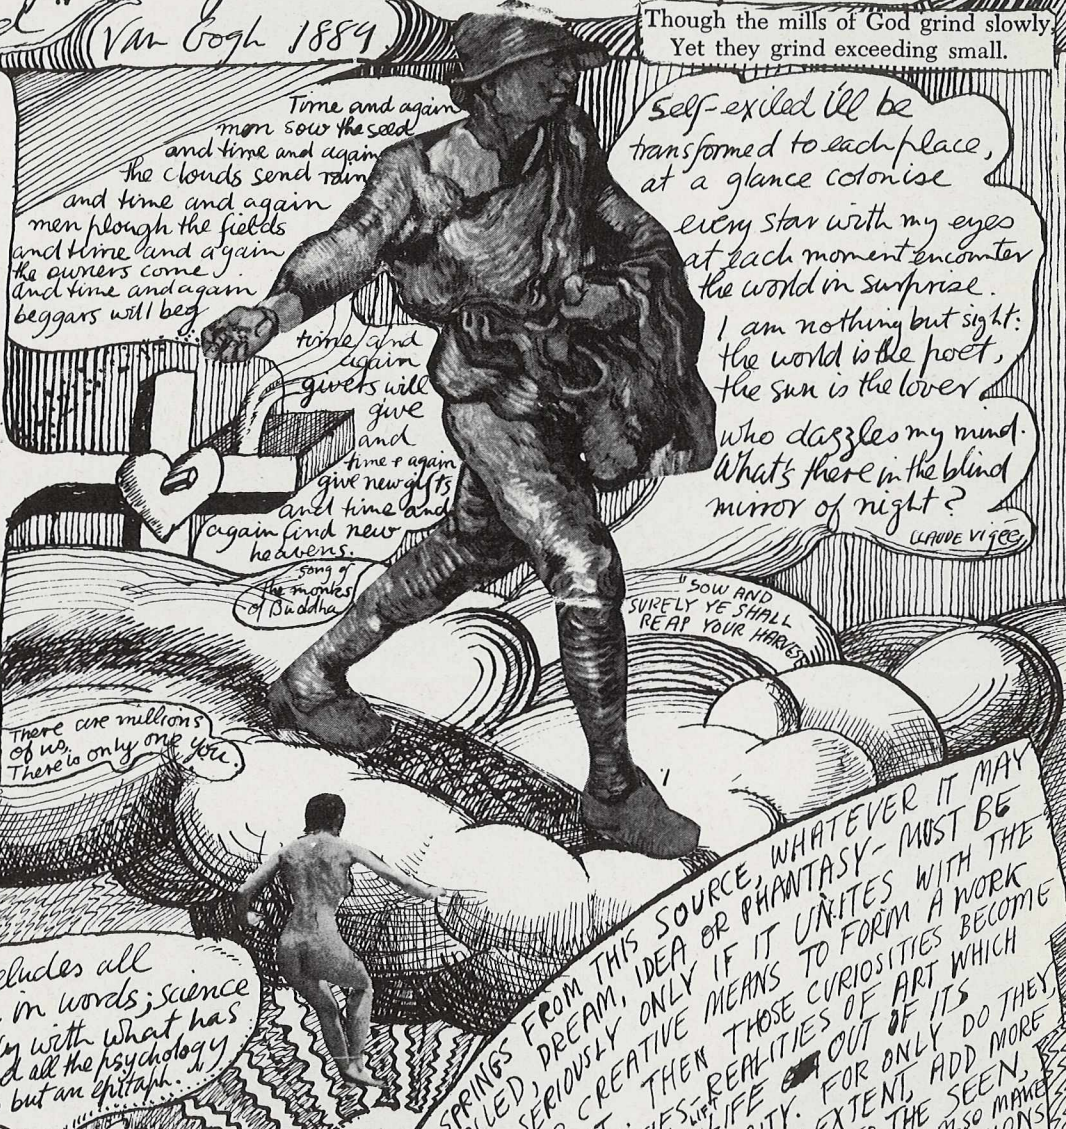 Van Gogh 1889
Though the mills of God grind slowly,
Yet they grind exceeding small.
Time and again
men sow the seed
and time and again
the clouds send rain
and time and again
men plough the fields
and time and again
the owners come
and time and again
beggars will beg
time and
again
givers will
give
and
time & again
give new gifts
and time and
again find new
heavens.
song of
the monks
of Buddha
Self-exiled i'll be
transformed to each place,
at a glance colonise
every star with my eyes
at each moment encounter
the world in surprise.
I am nothing but sight:
the world is the poet,
the sun is the lover
who dazzles my mind.
What's there in the blind
mirror of night?
CLAUDE Vigée
"SOW AND
SURELY YE SHALL
REAP YOUR HARVEST
There are millions
of us,
There is only one you.
eludes all
in words; science
with what has
all the psychology
but an epitaph."
SPRINGS FROM THIS SOURCE, WHATEVER IT MAY
DREAM, IDEA OR PHANTASY - MUST BE
SERIOUSLY ONLY IF IT UNITES WITH THE
CREATIVE MEANS TO FORM A WORK
THEN THOSE CURIOSITIES BECOME
REALITIES OF ART WHICH
LIFT LIFE OUT OF ITS
FOR ONLY DO THEY,
EXTENT, ADD MORE
THE SEEN,
ALSO MAKE